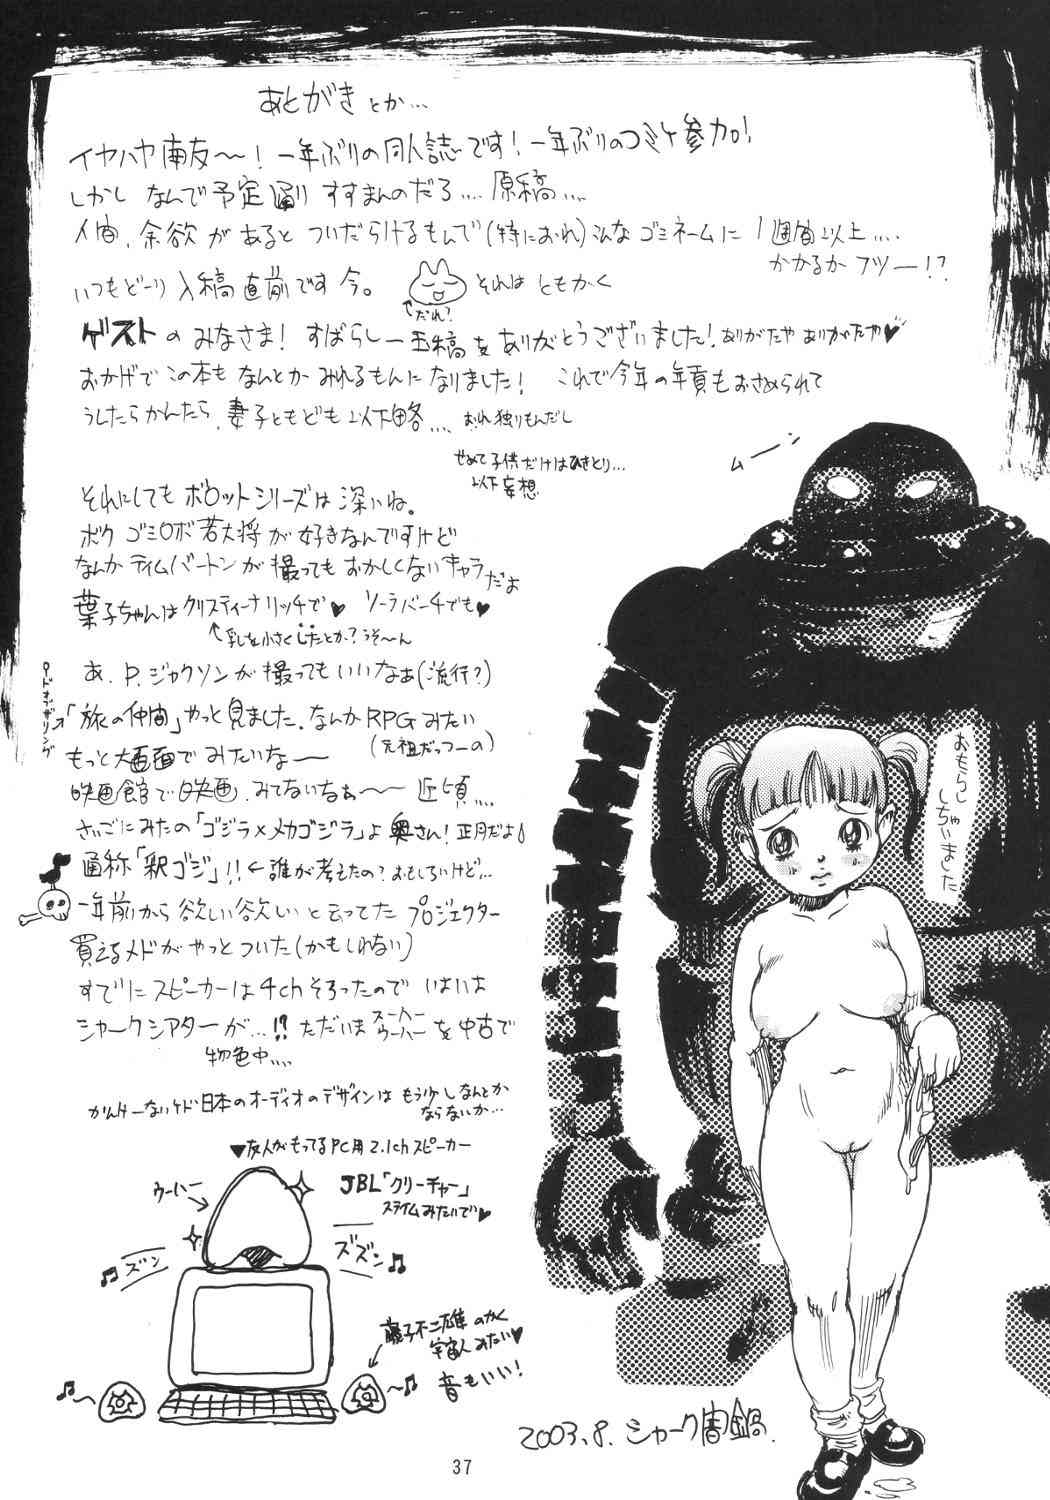 あとがきとか…
イヤハヤ南友〜！一年ぶりの同人誌です！一年ぶりのコミケ参加！
しかし なんで予定通り すすまんのだろ…. 原稿….
人間、余欲が あると ついだらけるもんで(特におれ)こんな ゴミネームに 1週間以上….
かかるか フツー!?
いつもどーり 入稿直前です 今。
それは ともかく
だれ?
ゲストの みなさま! すばらしー玉稿を ありがとうございました! ありがたや ありがたや♥
おかげで この本も なんとか みれるもんに なりました! これで今年の年貢もおさめられて
うんたらかんたら、妻子ともども 以下略…. おれ独りもんだし
せめて子供だけはひきとり…
以下妄想
それにしても ボロットシリーズは 深いね。
ボク ゴミロボ若大将が 好きなんですけど
なんかティムバートンが 撮っても おかしくないキャラだよ
葉子ちゃんは クリスティーナリッチで♥ ソーラバーチでも♥
乳を小さくしたとか?うそ〜ん
あ、P.ジャクソンが 撮っても いいなぁ(流行?)
ロードオブザリング
「旅の仲間」やっと見ました、なんか RPGみたい
(元祖だっつーの)
もっと大画面で みたいなー
映画館で映画、みてないなぁ〜〜 近頃….
さいごにみたの「ゴジラ×メカゴジラ」よ 奥さん! 正月だよ♪
通称「釈ゴジ」!! ←誰が考えたの? おもしろいけど…
一年前から 欲しい欲しい と云ってた プロジェクター
買えるメドが やっとついた(かもしれない)
すでに スピーカーは 4ch そろったので いよいよ
シャークシアターが…!? ただいま スーパーウーハーを 中古で
物色中….
かんけーないケド 日本のオーディオのデザインは もう少し なんとか
ならないか…
▼友人がもってるPC用 2.1chスピーカー
JBL「クリーチャー」
スライムみたいで♥
ウーハー
ズン
ズズン
藤子不二雄のかく
宇宙人みたい♥
音もいい!
ムー
おもらし
しちゃいました
2003、8. シャーク闇鍋.
37